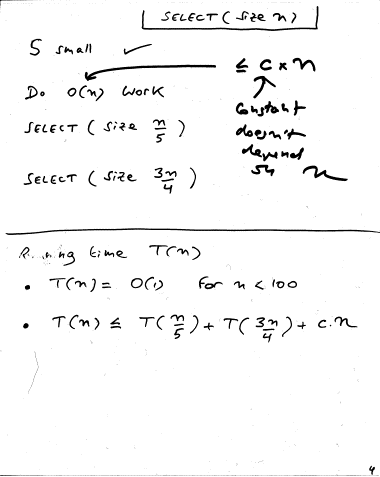 SELECT ( size n )
S small ✓
≤ c × n
Do O(n) work
constant
doesn't
depend
on n
SELECT ( size n/5 )
SELECT ( size 3n/4 )
Running time T(n)
• T(n) = O(1) for n < 100
• T(n) ≤ T(n/5) + T(3n/4) + c.n
4